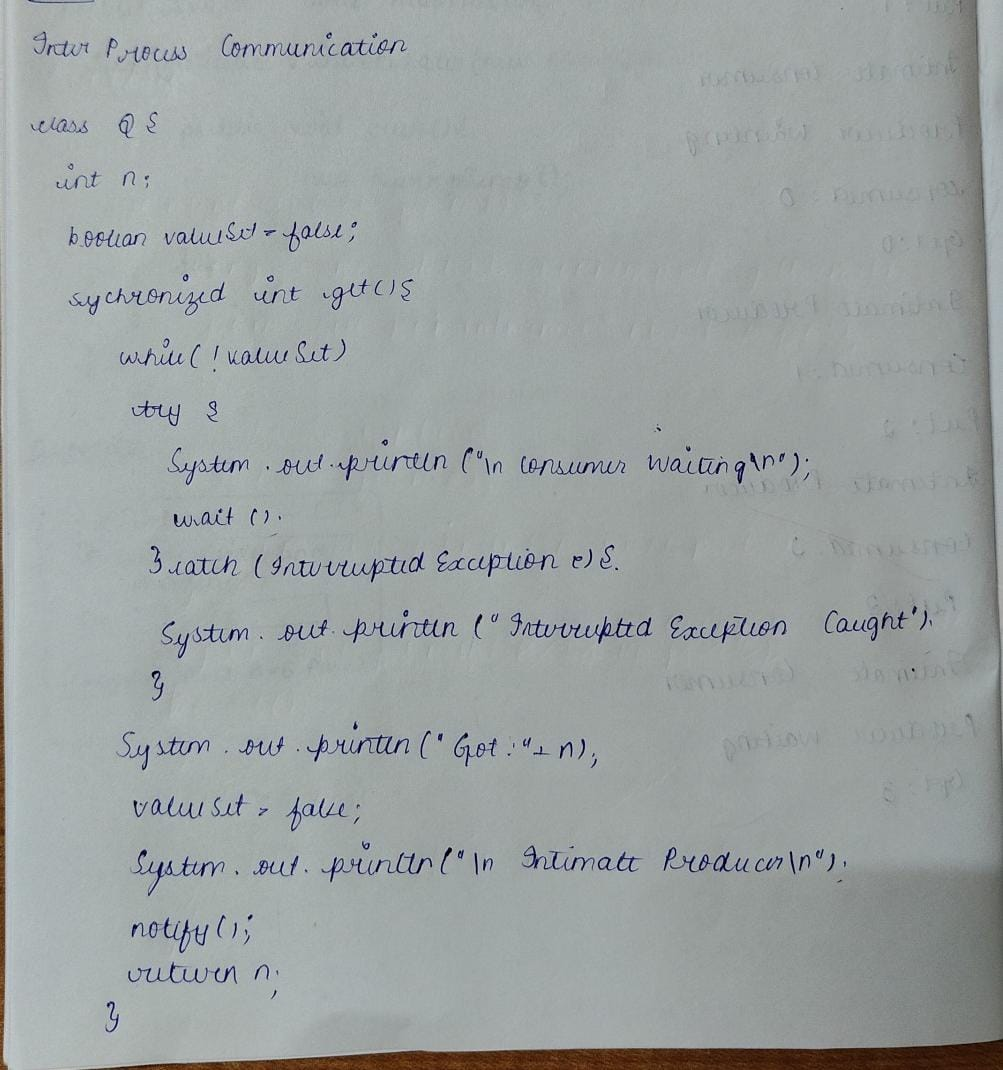 Inter Process Communication
class Q {
int n;
boolean valueSet = false;
sychronized int get() {
while ( ! valueSet)
try {
System . out . println ("\n Consumer Waiting \n");
wait ().
} catch ( Interrupted Exception e) {.
System . out . println (" Interrupted Exception Caught").
}
System . out . println (" Got : "+ n);
valueSet = false;
System . out . println (" \n Intimate Producer \n").
notify ();
return n;
}